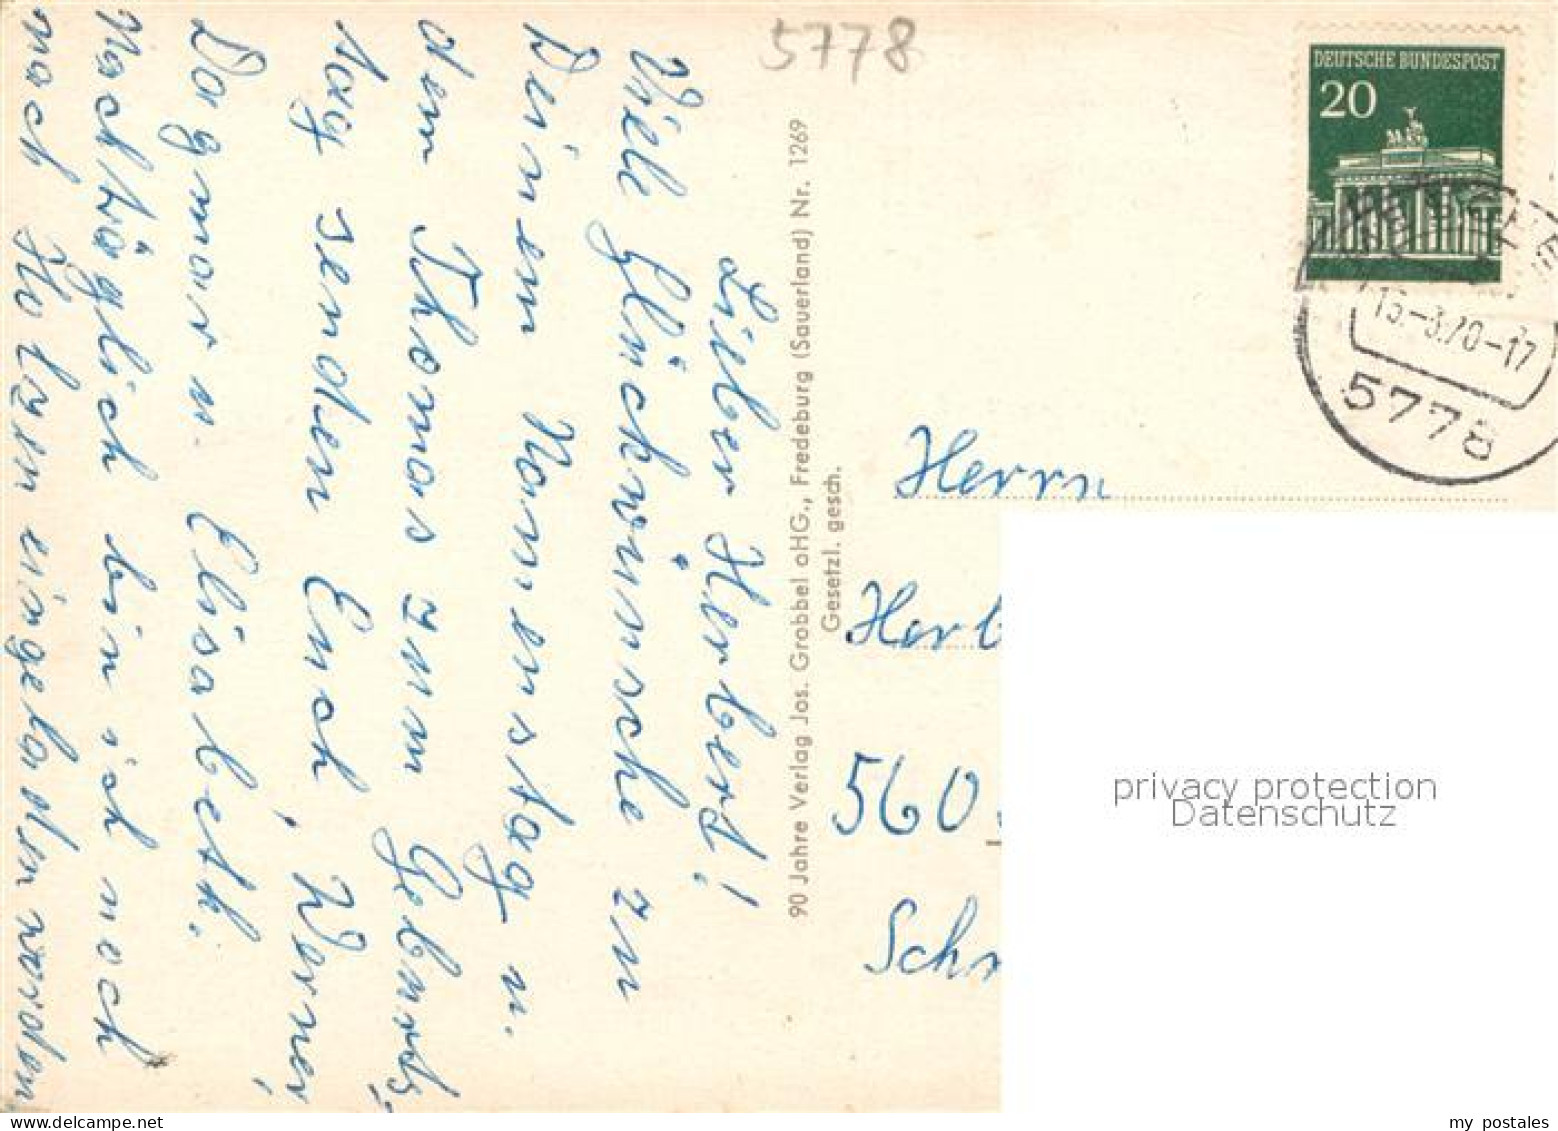 5778
DEUTSCHE BUNDESPOST
20
13.-3.70-17
5778
Lieber Herbert!
Viele Glückwünsche zu
Deinem Namenstag u.
dem Thomas zum Geburts-
tag senden Euch, Werner,
Dagmar u. Elisabeth.
Nachträglich bin ich noch
nach Holzen eingeladen worden
90 Jahre Verlag Jos. Grobbel oHG., Fredeburg (Sauerland) Nr. 1269
Gesetzl. gesch.
Herrn
Herb
560
Schr
privacy protection
Datenschutz
my postales